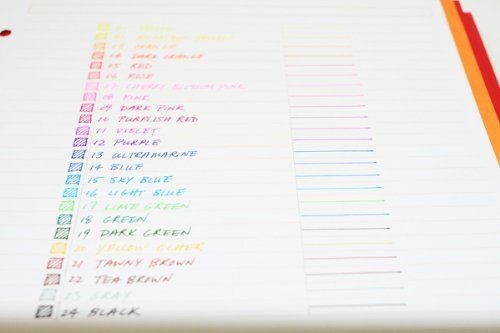 01 YELLOW
02 MOUNTAIN YELLOW
03 ORANGE
04 DARK ORANGE
05 RED
06 ROSE
07 CHERRY BLOSSOM PINK
08 PINK
09 DARK PINK
10 PURPLISH RED
11 VIOLET
12 PURPLE
13 ULTRAMARINE
14 BLUE
15 SKY BLUE
16 LIGHT BLUE
17 LIME GREEN
18 GREEN
19 DARK GREEN
20 YELLOW OCHER
21 TAWNY BROWN
22 TEA BROWN
23 GRAY
24 BLACK